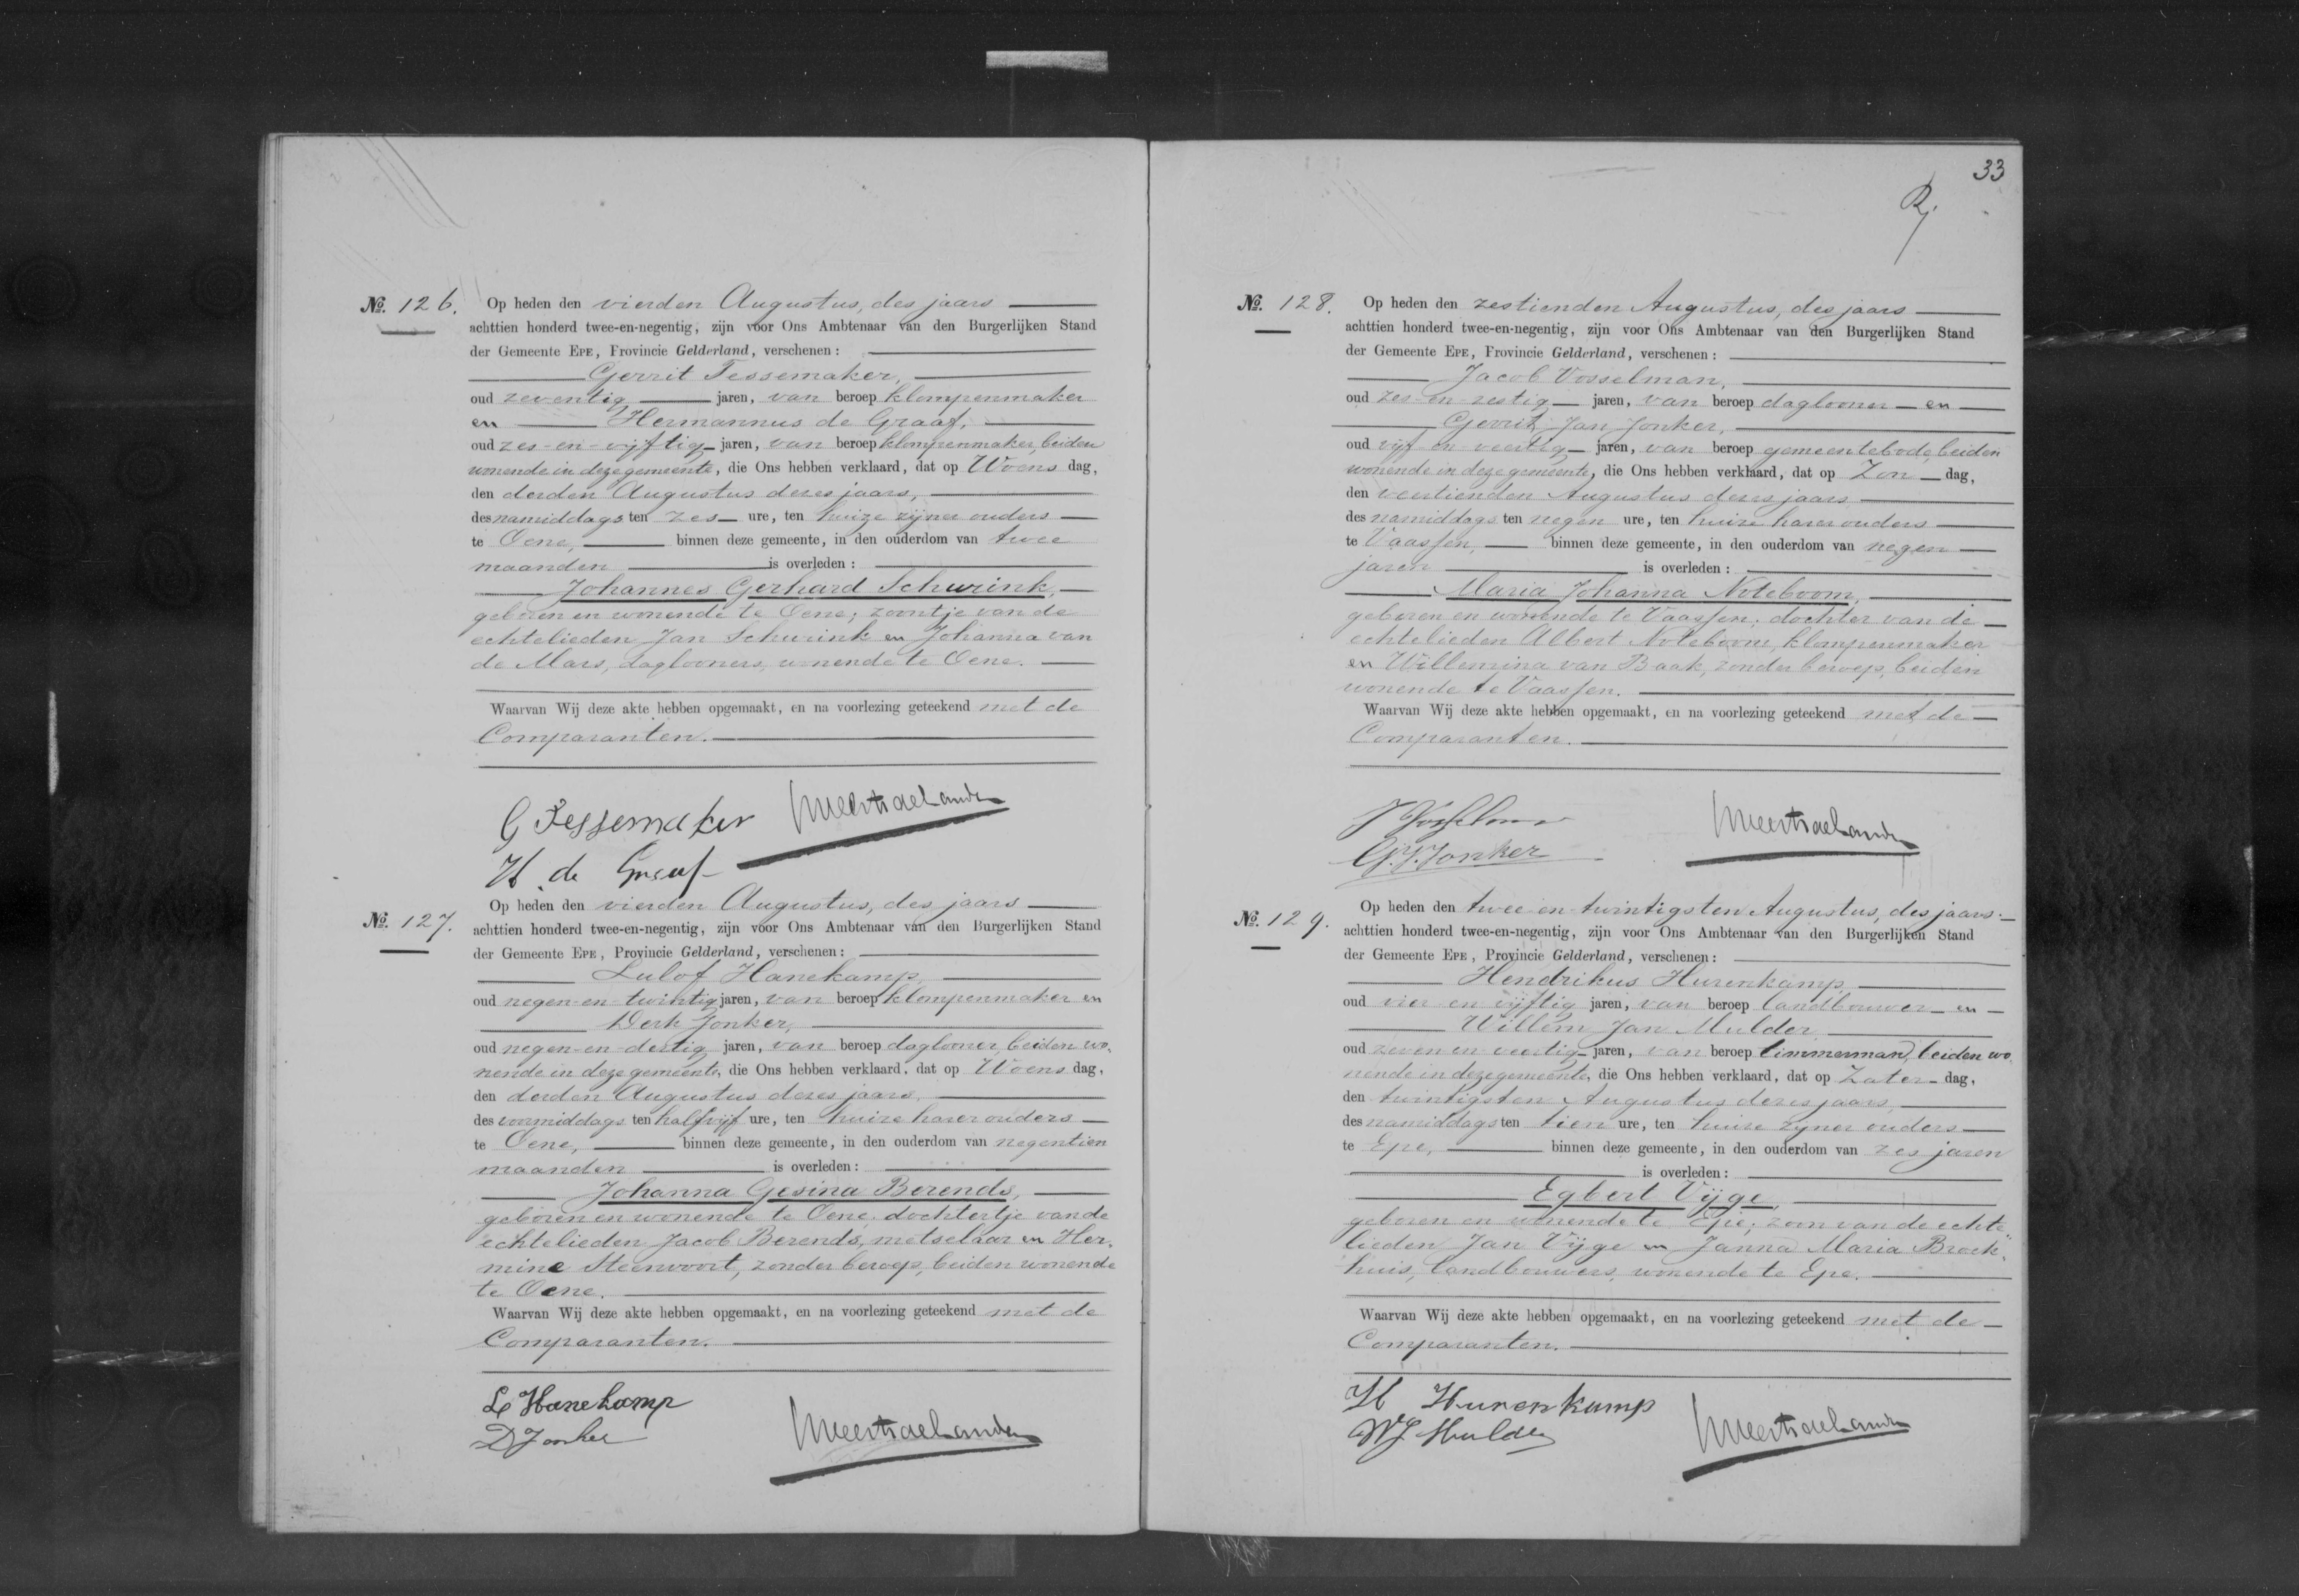 No. 126. Op heden den vierden Augustus, des jaars
achttien honderd twee-en-negentig, zijn voor Ons Ambtenaar van den Burgerlijken Stand
der Gemeente EPE, Provincie Gelderland, verschenen:
Gerrit Tessemaker,
oud zeventig jaren, van beroep klompenmaker
en Hermannus de Graaf,
oud zes-en-vijftig jaren, van beroep klompenmaker, beiden
wonende in deze gemeente, die Ons hebben verklaard, dat op Woensdag,
den derden Augustus dezes jaars,
des namiddags ten zes ure, ten huize zijner ouders
te Oene, binnen deze gemeente, in den ouderdom van twee
maanden is overleden:
Johannes Gerhard Schurink,
geboren en wonende te Oene; zoontje van de
echtelieden Jan Schurink en Johanna van
de Mars, daglooners, wonende te Oene.
Waarvan Wij deze akte hebben opgemaakt, en na voorlezing geteekend met de
Comparanten.
G Tessemaker
H. de Graaf
No. 127. Op heden den vierden Augustus, des jaars
achttien honderd twee-en-negentig, zijn voor Ons Ambtenaar van den Burgerlijken Stand
der Gemeente EPE, Provincie Gelderland, verschenen:
Lulof Hanekamp,
oud negen-en-twintig jaren, van beroep klompenmaker en
Derk Jonker,
oud negen-en-dertig jaren, van beroep daglooner, beiden wo-
nende in deze gemeente, die Ons hebben verklaard, dat op Woensdag,
den derden Augustus dezes jaars,
des voormiddags ten half vijf ure, ten huize harer ouders
te Oene, binnen deze gemeente, in den ouderdom van negentien
maanden is overleden:
Johanna Gesina Berends,
geboren en wonende te Oene; dochtertje van de
echtelieden Jacob Berends, metselaar en Her-
mine Steenvoort, zonder beroep, beiden wonende
te Oene.
Waarvan Wij deze akte hebben opgemaakt, en na voorlezing geteekend met de
Comparanten.
L Hanekamp
D Jonker
33
No. 128. Op heden den zestienden Augustus, des jaars
achttien honderd twee-en-negentig, zijn voor Ons Ambtenaar van den Burgerlijken Stand
der Gemeente EPE, Provincie Gelderland, verschenen:
Jacob Vosselman,
oud zes-en-zestig jaren, van beroep daglooner en
Gerrit Jan Jonker,
oud vijf-en-veertig jaren, van beroep gemeentebode, beiden
wonende in deze gemeente, die Ons hebben verklaard, dat op Zondag,
den veertienden Augustus dezes jaars
des namiddags ten negen ure, ten huize harer ouders
te Vaassen, binnen deze gemeente, in den ouderdom van negen
jaren is overleden:
Maria Johanna Noteboom,
geboren en wonende te Vaassen; dochter van de
echtelieden Albert Noteboom, klompenmaker
en Willemina van Baak, zonder beroep, beiden
wonende te Vaassen.
Waarvan Wij deze akte hebben opgemaakt, en na voorlezing geteekend met de
Comparanten.
J Vosselman
G.J. Jonker
No. 129. Op heden den twee-en-twintigsten Augustus, des jaars
achttien honderd twee-en-negentig, zijn voor Ons Ambtenaar van den Burgerlijken Stand
der Gemeente EPE, Provincie Gelderland, verschenen:
Hendrikus Hurenkamp,
oud vier-en-vijftig jaren, van beroep landbouwer en
Willem Jan Mulder
oud zeven-en-veertig jaren, van beroep timmerman, beiden wo-
nende in deze gemeente, die Ons hebben verklaard, dat op Zaterdag,
den twintigsten Augustus dezes jaars,
des namiddags ten tien ure, ten huize zijner ouders
te Epe, binnen deze gemeente, in den ouderdom van zes jaren
is overleden:
Egbert Vijge,
geboren en wonende te Epe; zoon van de echte-
lieden Jan Vijge en Janna Maria Broek-
huis, landbouwers, wonende te Epe.
Waarvan Wij deze akte hebben opgemaakt, en na voorlezing geteekend met de
Comparanten.
H Hurenkamp
WJ Mulder